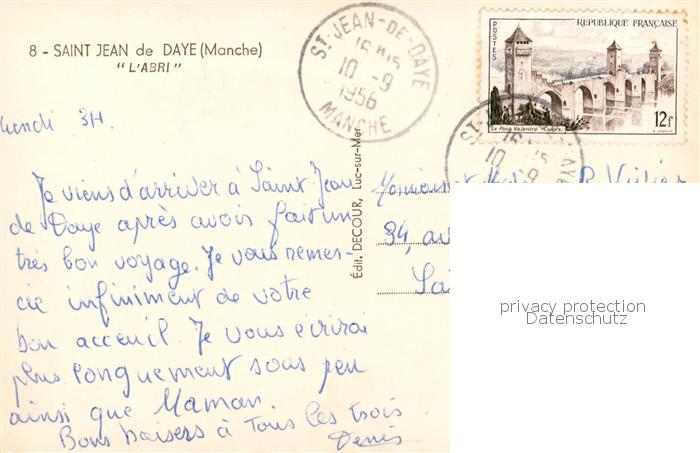 8 - SAINT JEAN de DAYE (Manche)
"L'ABRI"
ST-JEAN-DE-DAYE
16H15
10 -9
1956
MANCHE
POSTES
REPUBLIQUE FRANÇAISE
Le Pont Valentré Cahors
12f
16 15
10 -9
Lundi 3H.
Je viens d'arriver à Saint Jean
de Daye après avoir fait un
très bon voyage. Je vous remer-
cie infiniment de votre
bon acceuil. Je vous écrirai
plus longuement sous peu
ainsi que Maman.
Bons baisers à Tous les trois
Denis
Édit. DECOUR, Luc-sur-Mer
Monsieur et
34, av
privacy protection
Datenschutz